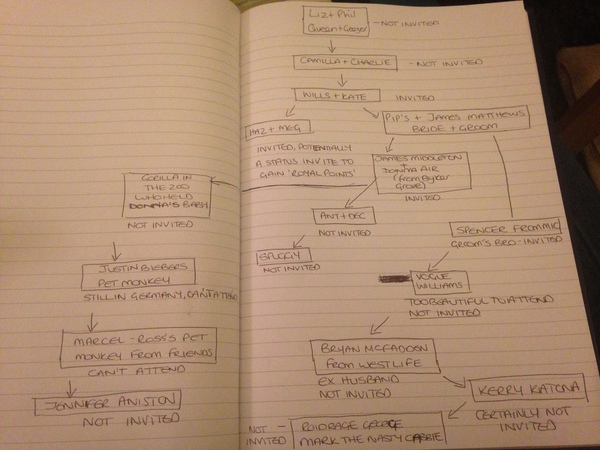 Liz + Phil
Queen + Geezer
- NOT INVITED
CAMILLA + CHARLIE
- NOT INVITED
WILLS + KATE
INVITED
HAZ + MEG
INVITED, POTENTIALLY
A STATUS INVITE TO
GAIN 'ROYAL POINTS'
PIP'S + JAMES MATTHEWS
BRIDE + GROOM
JAMES MIDDLETON
+
DONNA AIR
(from Byker
Grove)
INVITED
ANT + DEC
NOT INVITED
SPUGGY
NOT INVITED
SPENCER FROM MIC
GROOM'S BRO - INVITED
VOGUE
WILLIAMS
TOO BEAUTIFUL TO ATTEND
NOT INVITED
BRYAN MCFADDEN
FROM WESTLIFE
EX HUSBAND
NOT INVITED
KERRY KATONA
CERTAINLY NOT
INVITED
ROIDRAGE GEORGE
MARK THE NASTY CABBIE
NOT -
INVITED
GORILLA IN
THE ZOO
WHO HELD
DONNA'S BABY
NOT INVITED
JUSTIN BIEBERS
PET MONKEY
STILL IN GERMANY, CAN'T ATTEND
MARCEL - ROSS'S PET
MONKEY FROM FRIENDS
CAN'T ATTEND
JENNIFER ANISTON
NOT INVITED